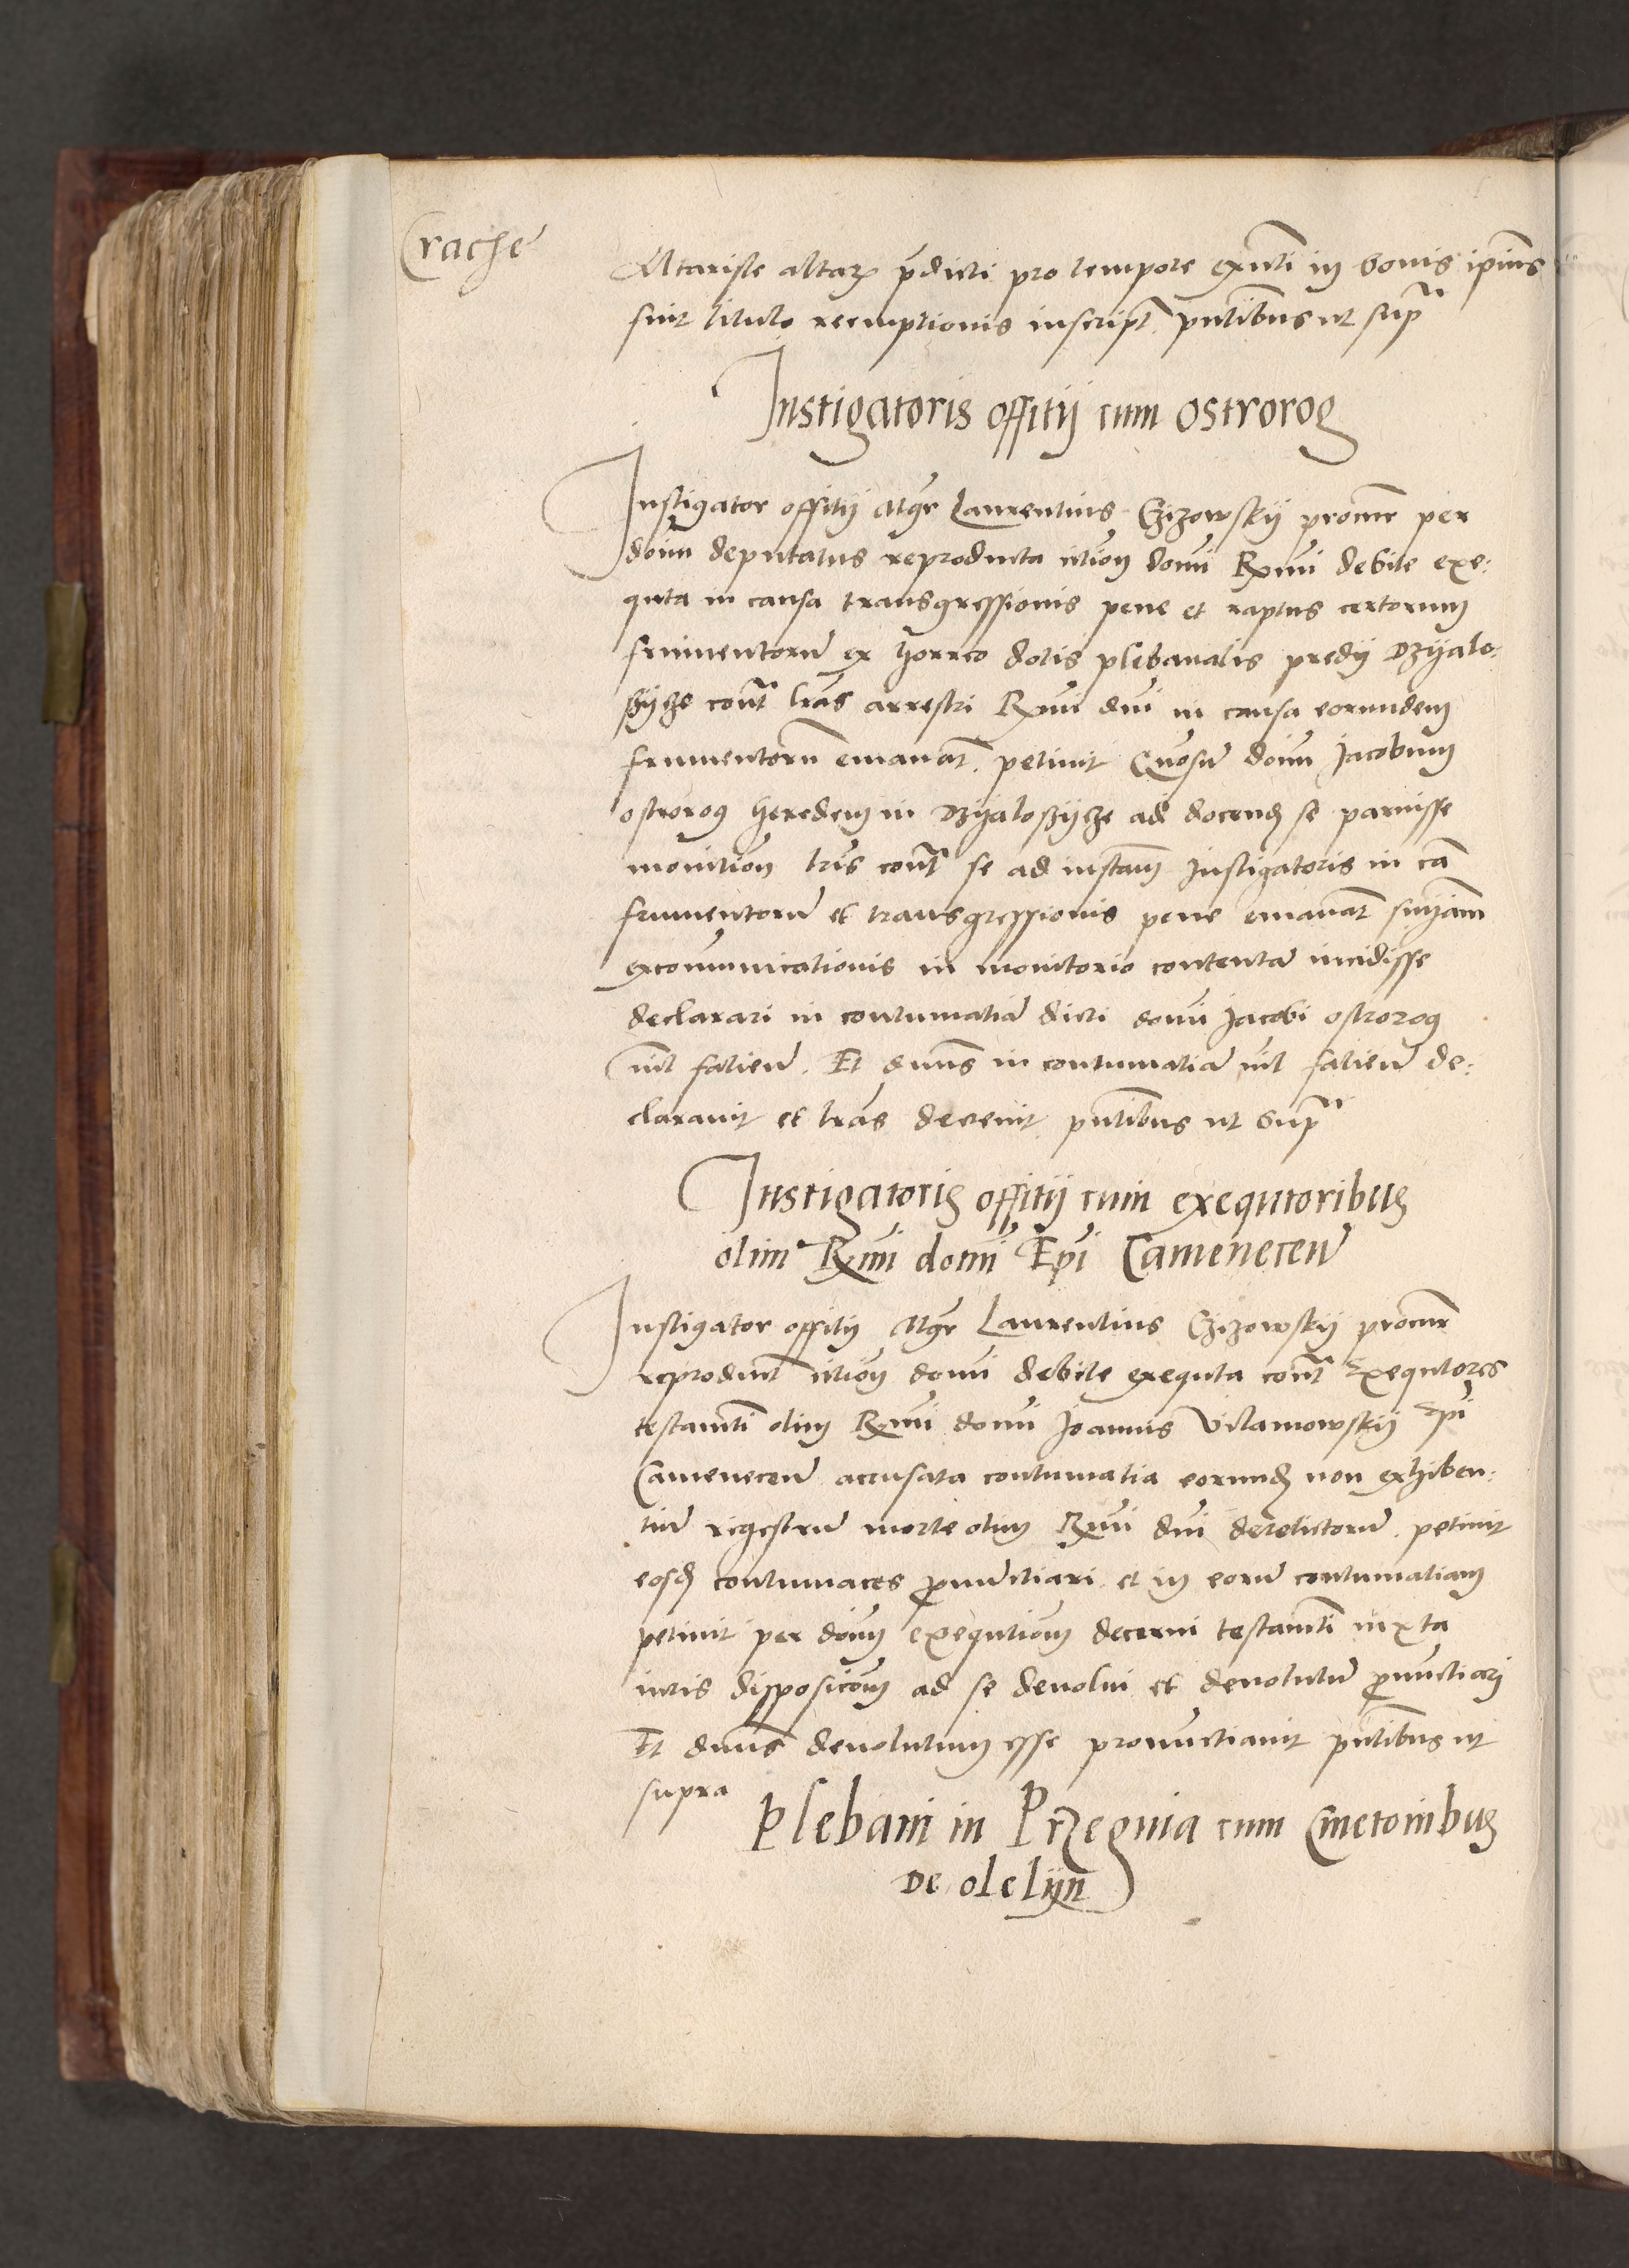 Crache
Altariste altar͛ p̄dicti pro tempore exn̄ti in bonis ip̄ius
sint titulo reemptionis inscript. pn̄tibus ut sup̄
Instigatoris offitij cum ostrorog
Instigator offitij Mgr̄ Laurentius Czizowskij procur̄ per
dom̄ deputatus reproducta
domi Rm̄i debite exe:
quta in causa transgressionis pene et raptus certorum
frumentorū ex horreo dotis plebanalis predij Dzyalo:
szycze cont̄ lr̄as arresti Rm̄i dn̄i in causa eorundem
frumentorū emanat̄. petiuit
dom̄ Jacobum
ostrorog heredem in Dzyaloszycze ad docend se paruisse
monition̄ lr̄is cont̄ se ad instam̄ Instigatoris in cā
frumentorū et transgressionis pene emanat̄
excommunicationis in monitorio contentā incidisse
declarari in contumatiā dicti domi Jacobi ostrorog
fatien̄. Et dn̄us in contumatiā
fatien̄ de:
clarauit et lr̄as decreuit pn̄tibus ut sup̄
Instigatoris offitij cum exequtoribus
olim Rm̄i domi Ep̄i Camenecen̄
Instigator offitij Mgr̄ Laurentius Czizowskij procur̄
reproduct̄
domi debite exequta cont̄ Exequtores
testamt̄i olim Rm̄i domi Joannis Vilamowskij Ep̄i
Camenecen̄ accusata contumatia eorund non exhiben:
tiū regestrū morte olim Rm̄i dn̄i derelictorū. petiuit
eosd contumaces pronūctiari et in eorū contumatiam
petiuit per dom̄ exequtiom̄ decerni testamt̄i iuxta
iuris disposicōm ad se deuolui et deuolutū pronūctiari
Et dn̄us deuolutum esse pronuctiauit pn̄tibus ut
supra
Plebani in Przeginia cum Cmetonibus
De olelyn